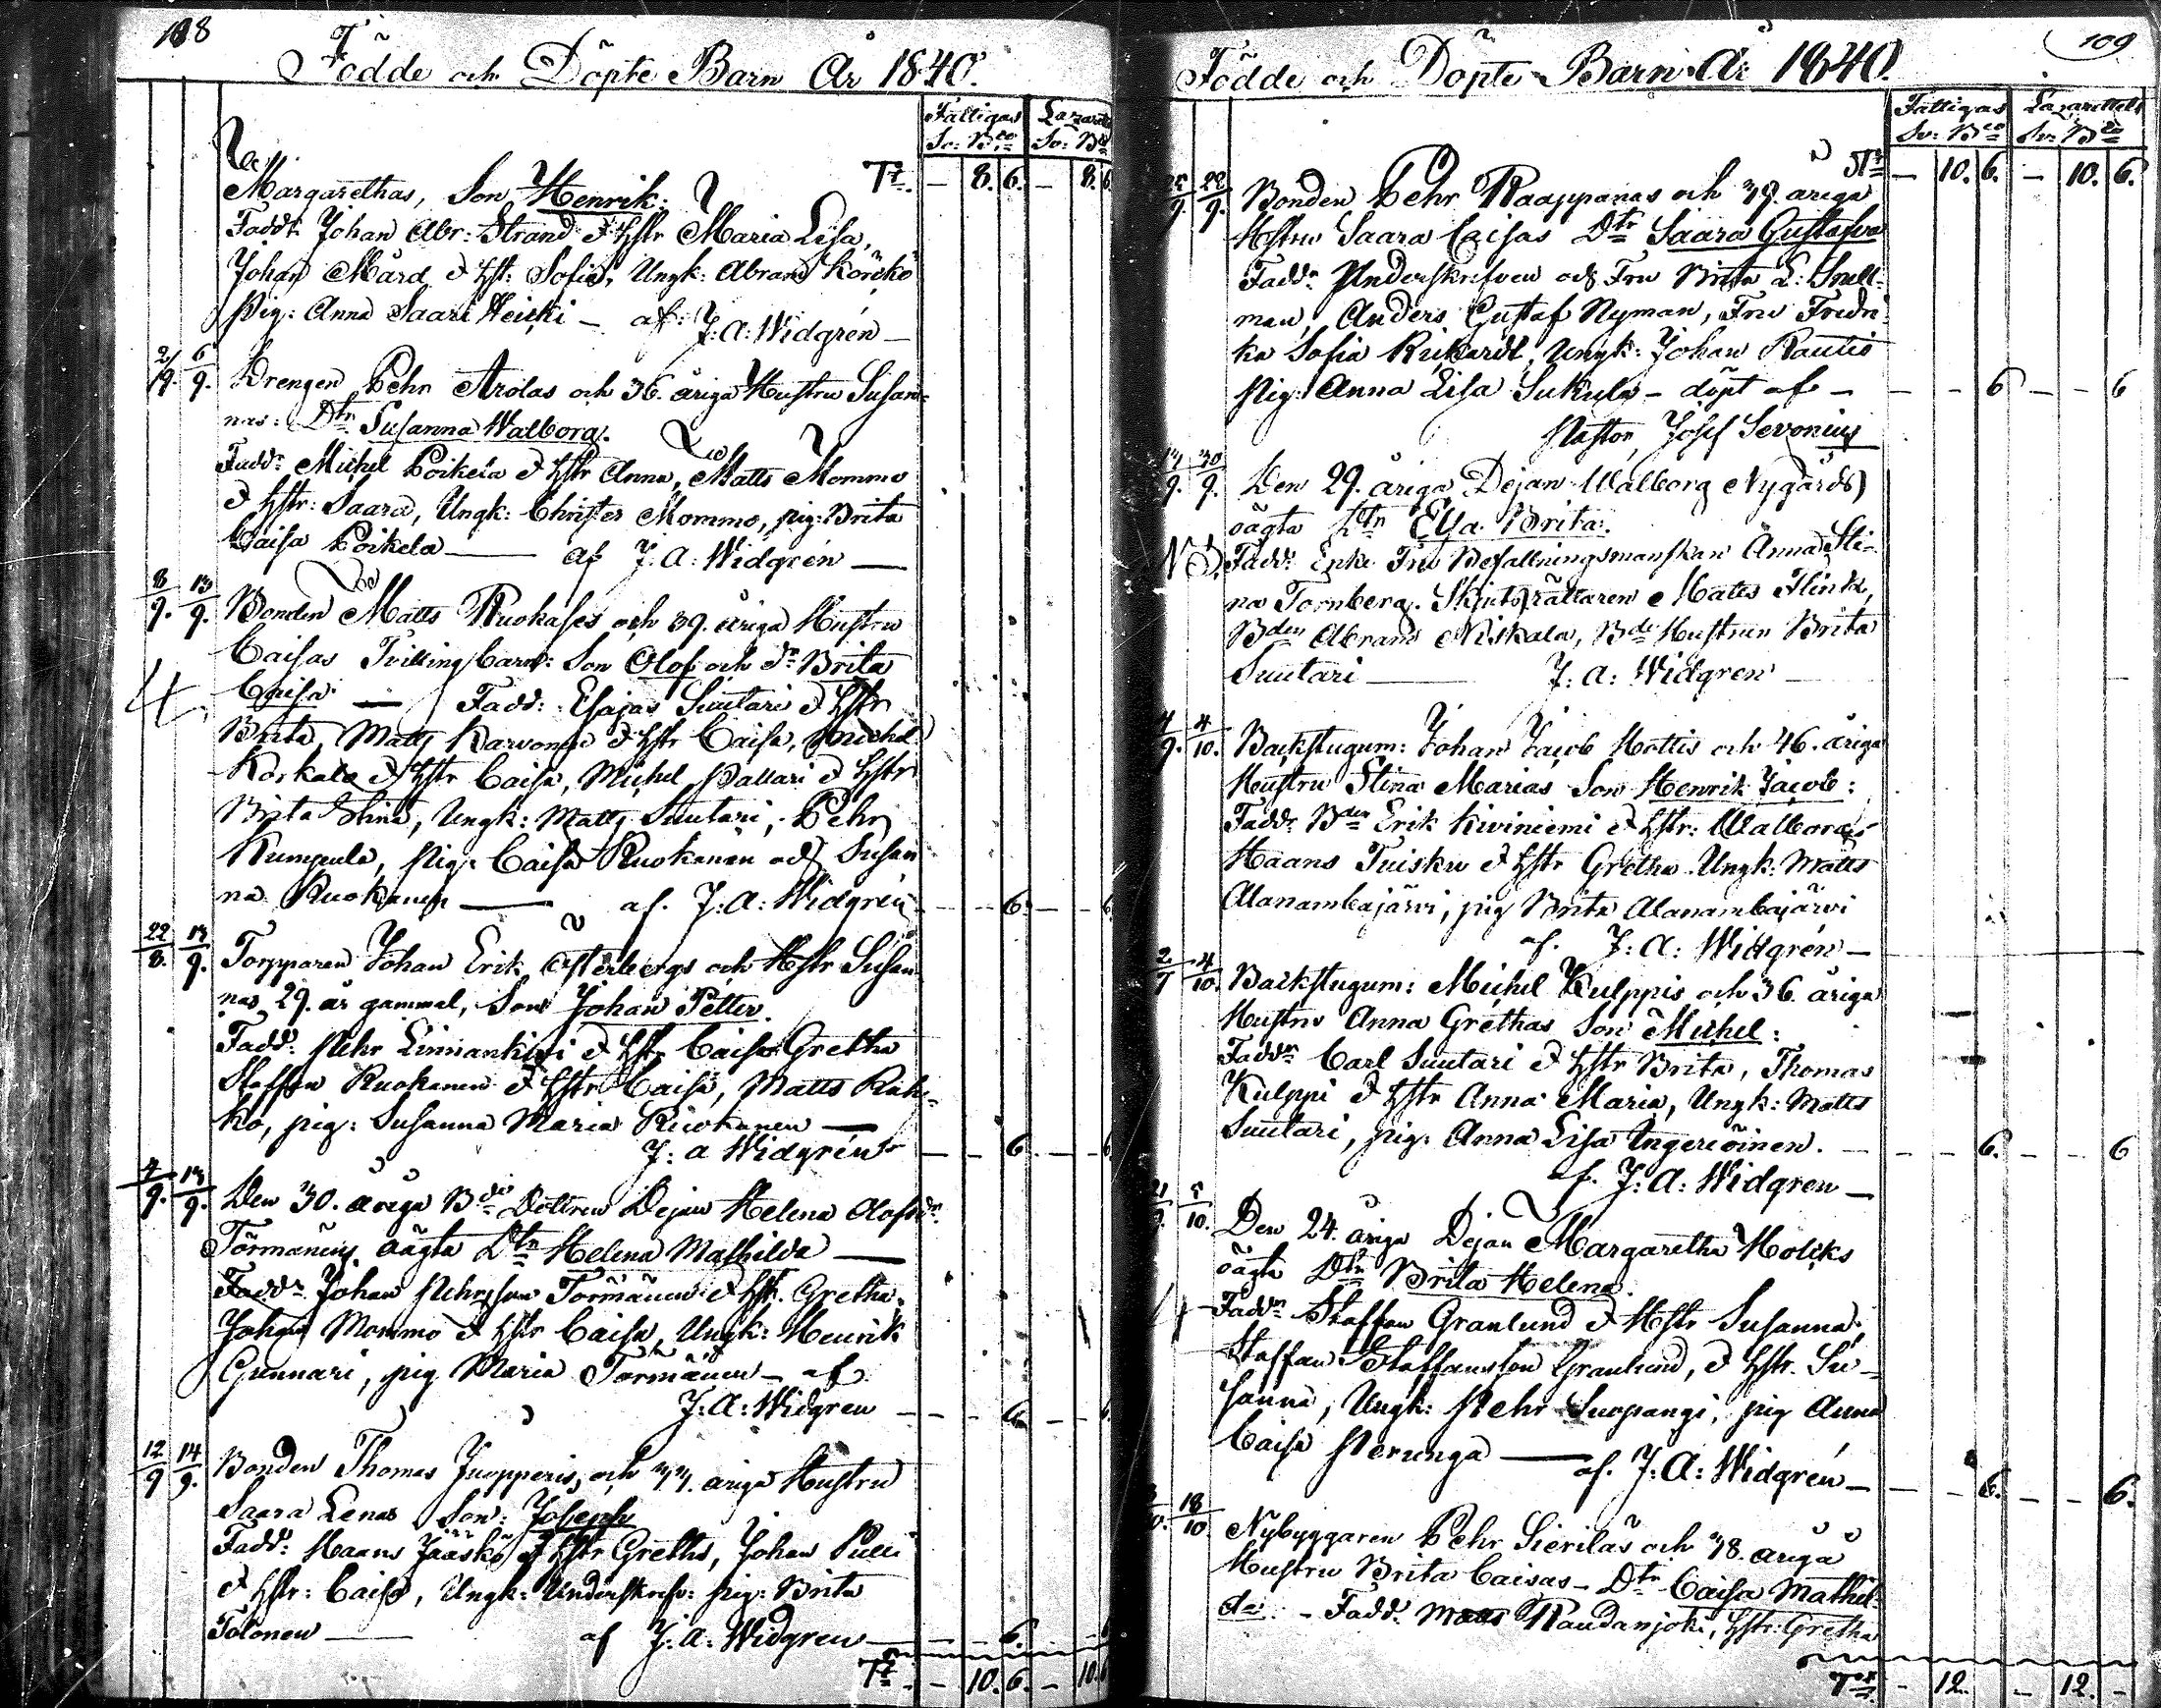 108
Födde och Döpte Barn År 1840.
Fattigas Lazarett
Sv: Bco Sv: Bco
Tr. - 8. 6. - 8. 6
Margarethas, Son Henrik:
Faddr Johan Abr: Strand & Hstr Maria Lisa,
Johan Mård & Hst: Sofia, Ungk: Abram Körckö
Pig: Anna Saari Heicki - af: J: A: Widgrén -
2/9. 6/9. Drengen Pehr Arolas och 36. åriga Hustru Susan-
nas: Dtr Susanna Walborg.
Fadd: Michel Poikela & Hstr Anna, Matts Mommo
& Hstr: Saara, Ungk: Christer Mommo, pig: Brita
Caisa Poikela — af J. A: Widgrén —
8/9. 13/9. Bonden Matts Ruokases och 39. åriga Hustru
Caisas Tvilling barn: Son Olof och Dr Brita
Caisa — Fadd: Esajas Suutari & Hstr
Brita, Matts Karvonen & Hstr Caisa, Michel
Korkala & Hstr Caisa, Michel Pallari & Hstr
Brita Stina, Ungk: Matts Suutari, Pehr
Kumpula, pig: Caisa Ruokanen och Susan
na Ruokanen — af. J: A: Widgrén - - - 6. - - 6
22/8. 13/9. Torpparen Johan Erik Österbergs och Hstr Susan
nas, 29. år gammal, Son Johan Petter.
Fadd: Pehr Linnankivi & Hstr Caisa Gretha
Staffan Ruokanen & Hstr Caisa, Matts Rah-
ko, pig: Susanna Maria Ruokanen —
J: A Widgrén - - - 6. - - 6
4/9. 13/9. Den 30. åriga Bde Dottren Dejan Helena Olofsdr
Törmänens oägta Dtr Helena Mathilda —
Faddr Johan Pehrsson Törmänen & Hstr. Gretha,
Johan Mommo & Hstr Caisa, Ungk: Henrik
Gunnari, pig Maria Törmänen - af
J: A: Widgren - - - 6 - - 6
12/9 14/9. Bonden Thomas Juopperis, och 33. åriga Hustru
Saara Lenas Son: Joseph
Fadd: Haans Jääskö & Hstr Gretha, Johan Pulli
& Hstr: Caisa, Ungk: Underskrefv: pig: Brita
Tolonen — af J: A: Widgren - - - 6. - - 6
Tr. - 10. 6. - 10. 6
109
Födde och Döpte Barn År 1840.
Fattigas Lazarettets
Sv: Bco Sv: Bco
Tr - 10. 6. - 10. 6.
22/9. 22/9. Bonden Pehr Raappanas och 39. åriga
Hstrus Saara Caisas Dtr Saara Gustafva
Fadd: Underskrefven och Fru Brita L: Snell-
man, Anders Gustaf Nyman, Fru Fredri
ka Sofia Rickardt, Ungk: Johan Rautio
Pig: Anna Lisa Sukula - döpt af - - - 6 - - 6
Pastor, Josef Sevonius
13/9. 30/9. Den 29. åriga Dejan Walborg Nygårds
oägta Dtr Elsa Brita.
NB. Fadd: Enke Fru Befallningsmanskan Anna Sti-
na Tornberg. Skjutsrättaren Matts Flink,
Bden Abram Niskala, Bde Hustrun Brita
Suutari — J: A: Widgren —
4/9. 4/10. Backstugum: Johan Jacob Hottis och 46. åriga
Hustru Stina Marias Son Henrik Jacob:
Fadd: Bden Erik Kiviniemi & Hstr: Walborg
Haans Tuisku & Hstr Gretha Ungk: Matts
Alanambajärvi, pig Brita Alanambajärvi
af. J: A: Widgrén -
2/9 4/10. Backstugum: Michel Kulppis och 36. åriga
Hustru Anna Grethas Son Michel:
Faddr Carl Suutari & Hstr Brita, Thomas
Kulppi & Hstr Anna Maria, Ungk: Matts
Suutari, pig: Anna Lisa Ingeriöinen. - - - 6. - - 6
af. J: A: Widgren -
21/9. 5/10. Den 24. åriga Dejan Margaretha Holcks
oägta Dtr Brita Helena.
Faddr Staffan Granlund & Hstr Susanna,
Staffan Staffansson Granlund, & Hstr. Su-
sanna, Ungk: Pehr Suopangi, pig Anna
Caisa Perunga — af. J: A: Widgrén - - - 6. - - 6.
18/10. Nybyggaren Pehr Sierilas och 38. åriga
Hustru Brita Caisas - Dtr Caisa Mathil-
da: - Fadd: Matts Raudanjoki, Hstr: Gretha
Tr - 12. - 12. -